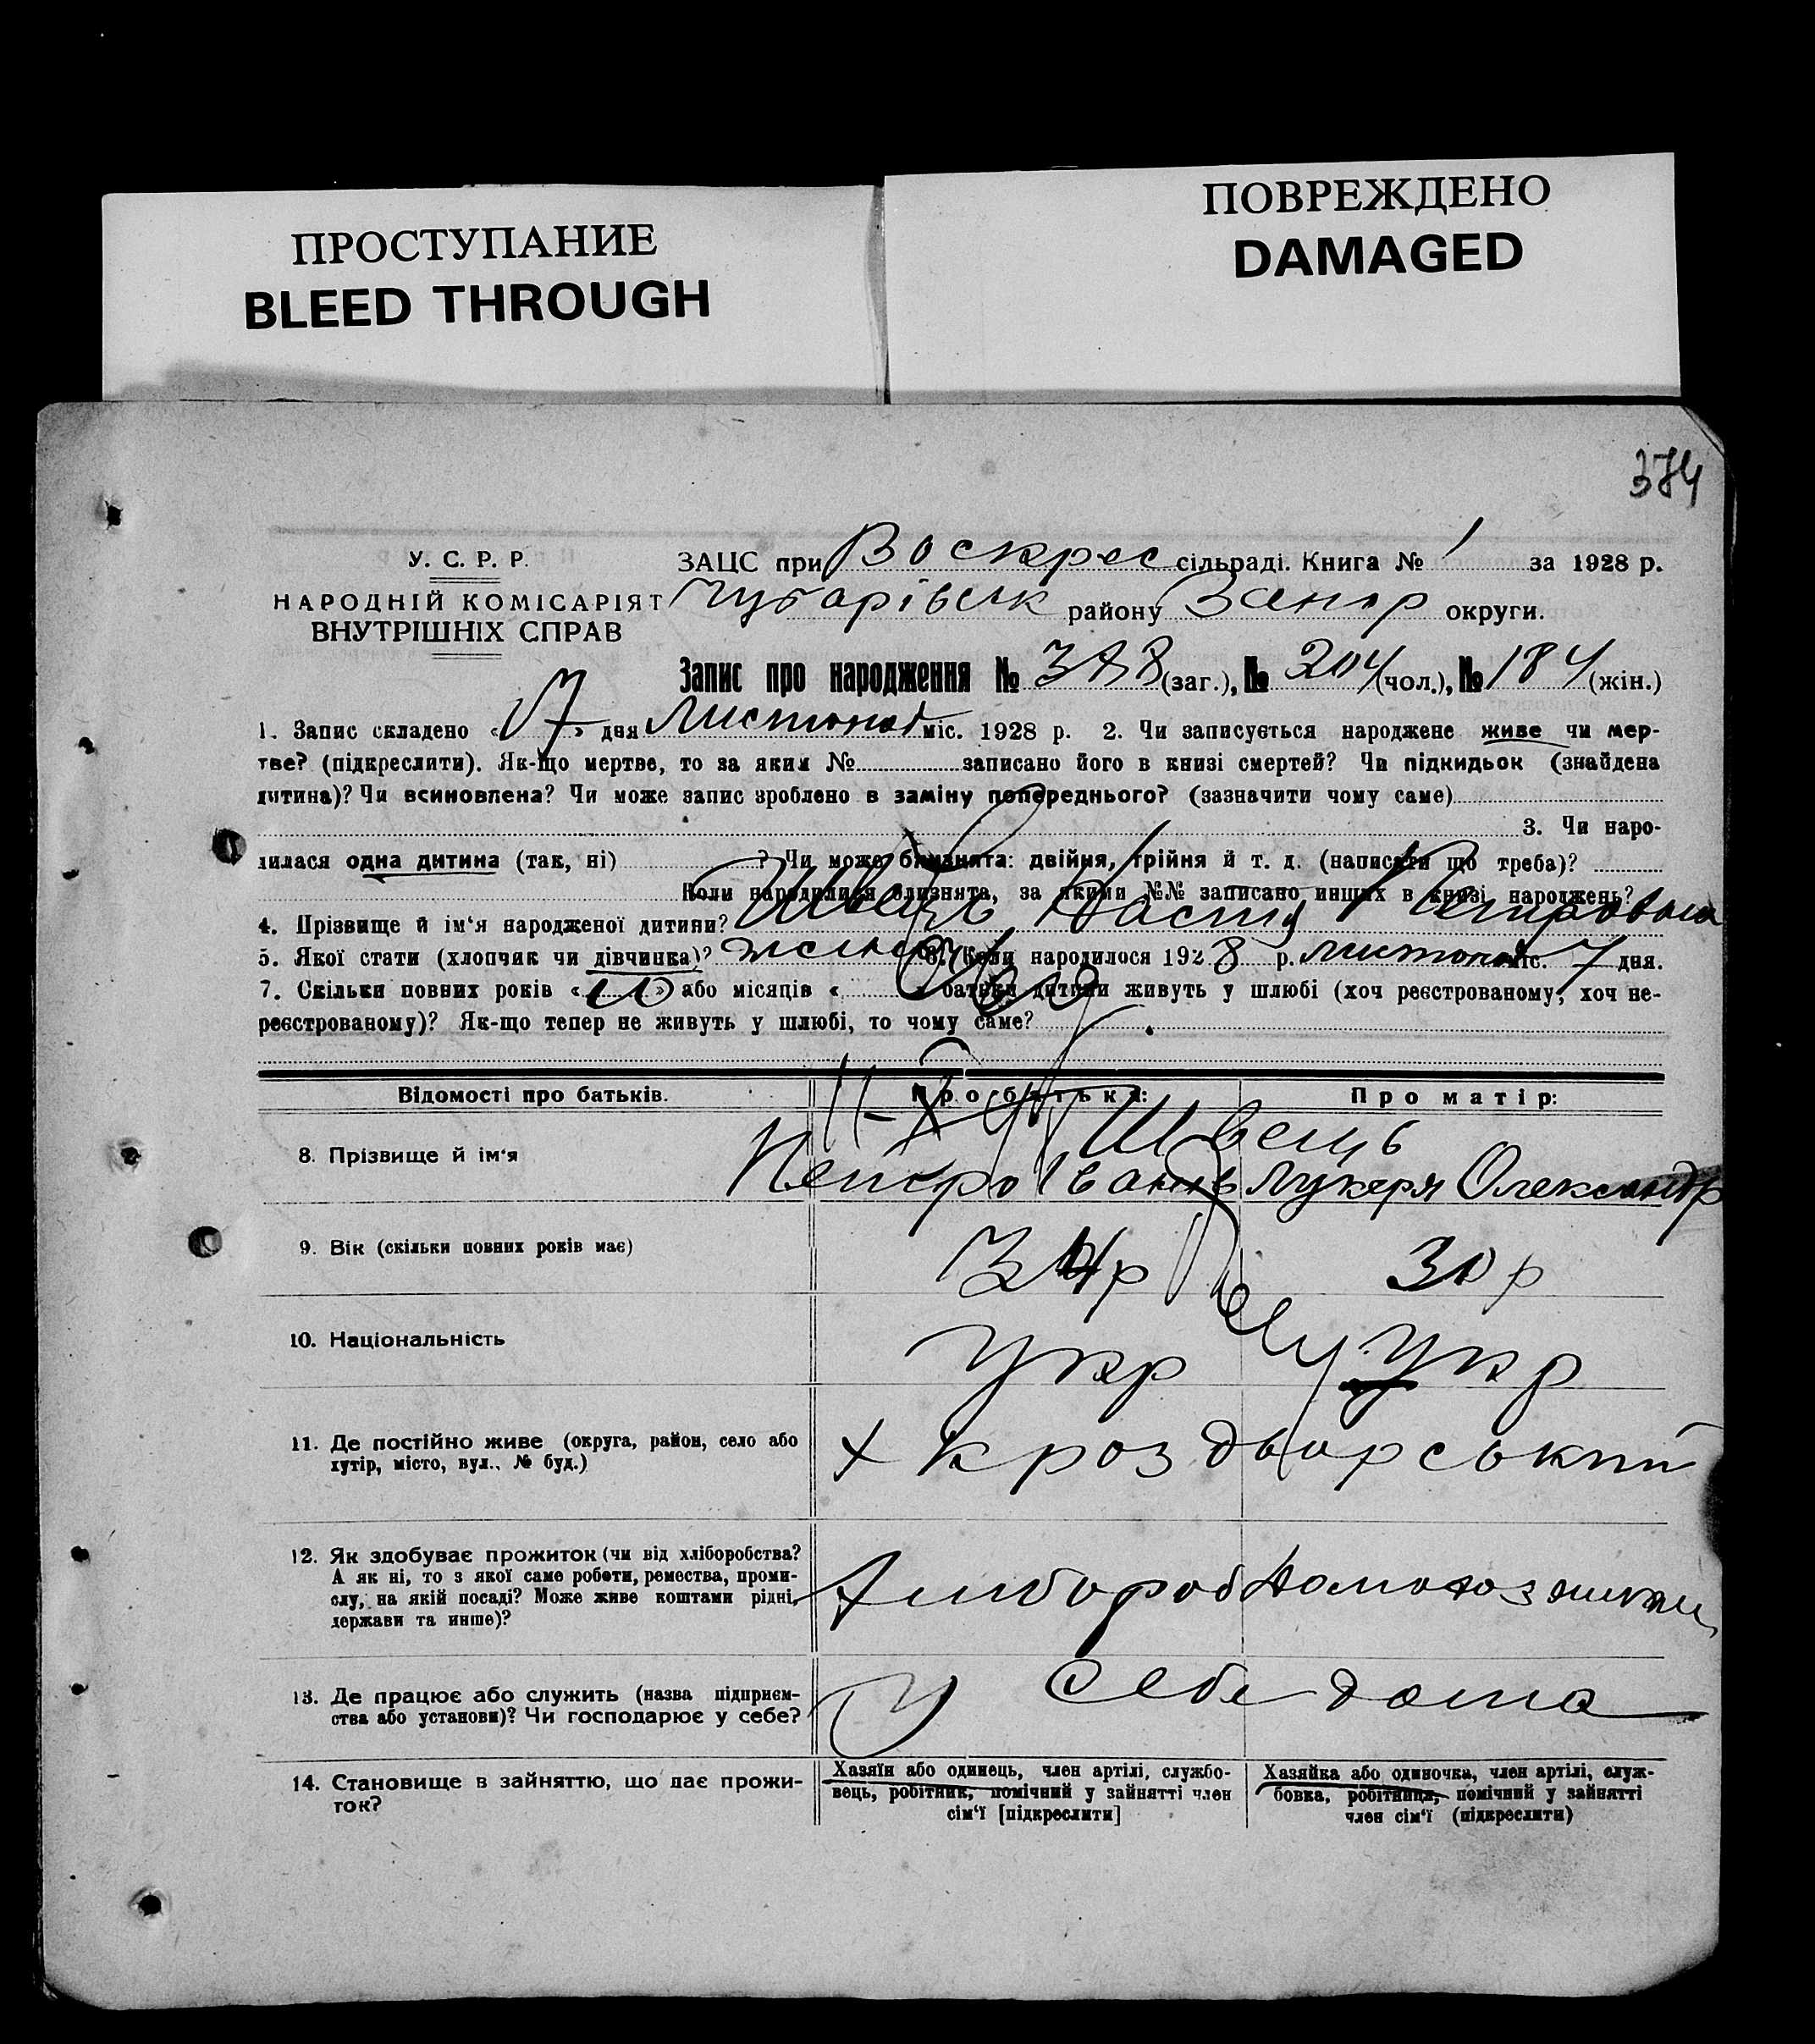 ПРОСТУПАНИЕ
BLEED THROUGH
ПОВРЕЖДЕНО
DAMAGED
374
У. С. Р. Р.
НАРОДНІЙ КОМІСАРІЯТ
ВНУТРІШНІХ СПРАВ
ЗАЦС при Воскрес сільраді. Книга № 1 за 1928 р.
Чубарівськ району Запор округи.
Запис про народження № 388 (заг.), № 204 (чол.), № 184 (жін.)
1. Запис складено « 17 » дня Листопад міс. 1928 р. 2. Чи записується народжене живе чи мер-
тве? (підкреслити). Як-що мертве, то за яким № записано його в книзі смертей? Чи підкидьок (знайдена
дитина)? Чи всиновлена? Чи може запис зроблено в заміну попереднього? (зазначити чому саме)
3. Чи наро-
дилася одна дитина (так, ні) ? Чи може близнята: двійня, трійня й т. д. (написати що треба)?
Коли народилися близнята, за якими №№ записано инших в книзі народжень?
4. Прізвище й ім‘я народженої дитини? Швець Настя Петровна
5. Якої статі (хлопчик чи дівчинка)? 6. Коли народилося 1928 р. листопад міс. 7 дня.
7. Скільки повних років « 10 » або місяців « » батьки дитини живуть у шлюбі (хоч реєстрованому, хоч не-
реєстрованому)? Як-що тепер не живуть у шлюбі, то чому саме?
Відомості про батьків. Про батька: Про матір:
Швець
8. Прізвище й ім‘я Петро Іванів Лукеря Олександр
9. Вік (скільки повних років має) 34 р 30 р
10. Національність Укр Укр
11. Де постійно живе (округа, район, село або
хутір, місто, вул., № буд.)
х Кроздворський
12. Як здобуває прожиток (чи від хліборобства?
А як ні, то з якої саме роботи, ремества, проми-
слу, на якій посаді? Може живе коштами рідні,
держави та инше)?
Хлибороб
13. Де працює або служить (назва підприєм-
ства або установи)? Чи господарює у себе?
У себе дома
14. Становище в зайняттю, що дає прожи-
ток?
Хазяїн або одинець, член артілі, службо-
вець, робітник, помічний у зайнятті член
сім‘ї [підкреслити]
Хазяйка або одиночка, член артілі, служ-
бовка, робітниця, помічний у зайнятті
член сім‘ї (підкреслити)